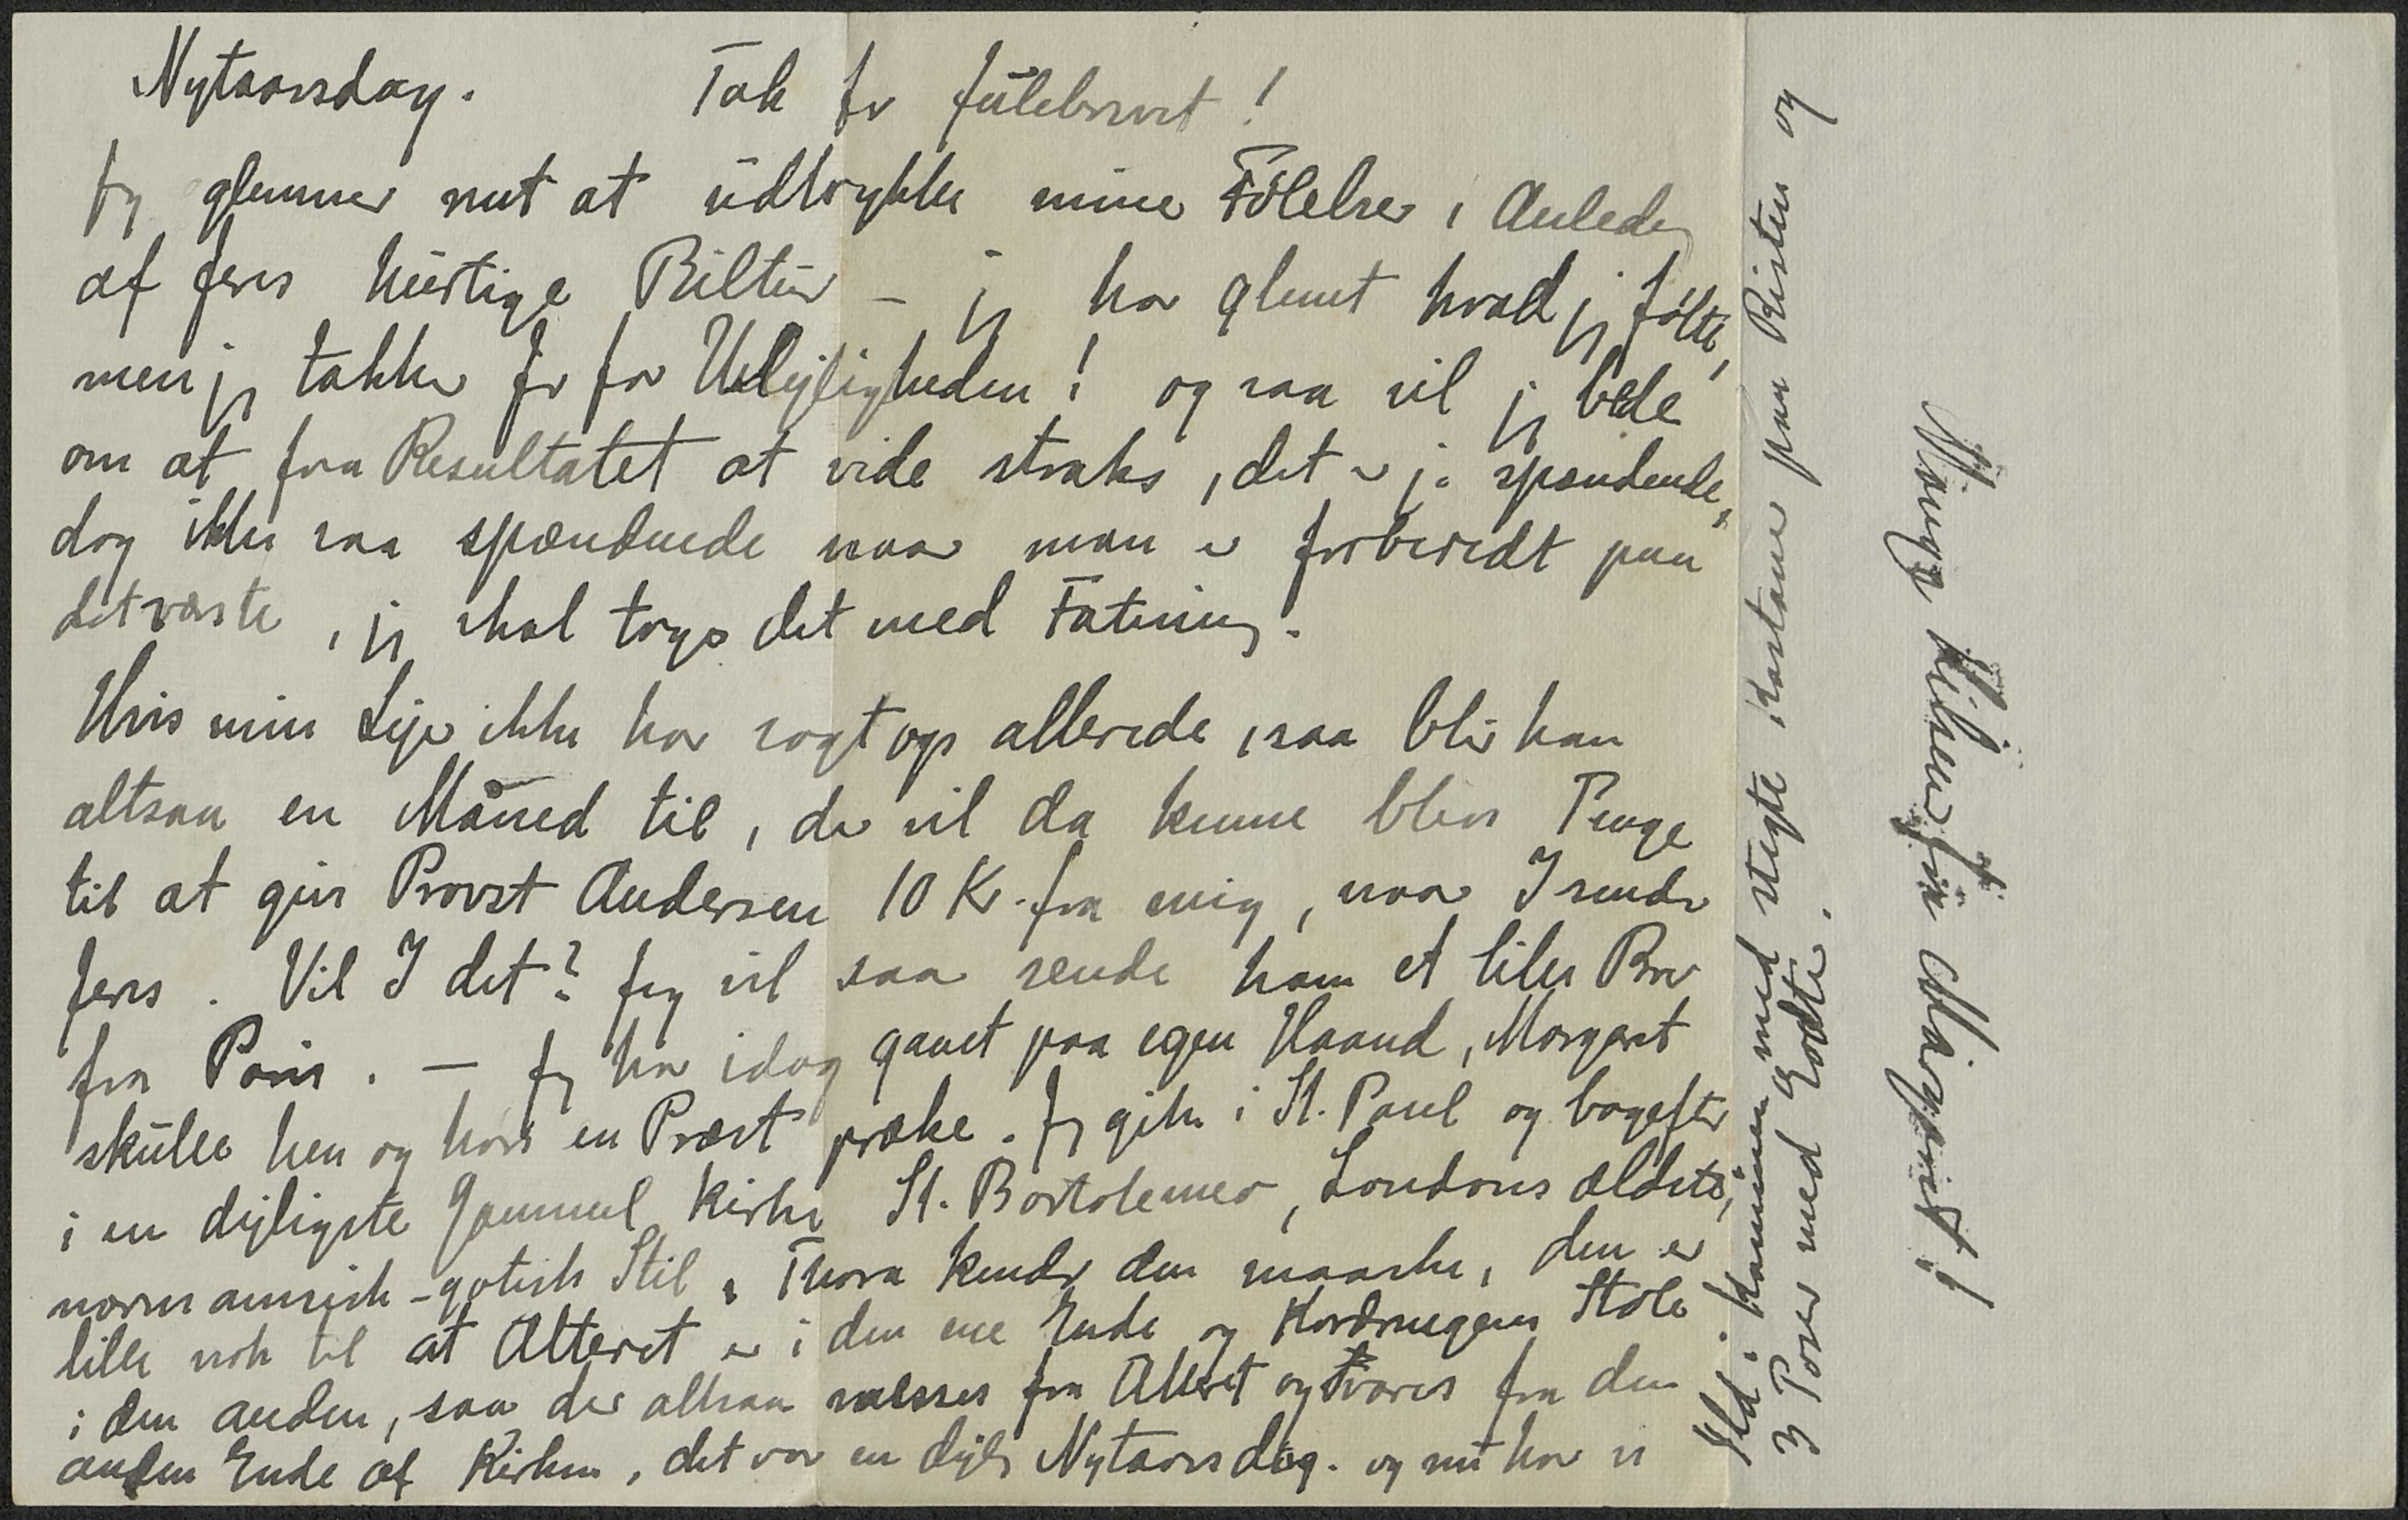 Nytaarsdag. Tak for Julebrevet!
Jeg glemmer nut at udtrykke mine Følelser i Anledg
af Jeres hurtige Biltur – jeg har glemt hvad jeg følte,
men jeg takker Jer for Ulejligheden! og saa vil jeg bede
om at faa Resultatet at vide straks, det er jo spændende,
dog ikke saa spændende naar man er forberedt paa
det værste, jeg skal tage det med Fatning.
Hvis min Lejer ikke har sagt op allerede, saa blir han
altsaa en Måned til, der vil da kunne blive Penge
til at give Provst Andersen 10 Kr. fra mig, naar I sender
Jeres. Vil I det? Jeg vil saa sende ham et lille Brev
fra Paris. – Jeg har idag gaaet paa egen Haand, Margaret
skulle hen og høre en Præst præke. Jeg gik i St. Paul og bagefter
i en dejligste Gammel Kirke St. Bartolemeo, Londons ældste,
normannisk-gotisk Stil, Thora kender den maaske, den er
lille nok til at Alteret er i den ene Ende og Kordrengenes Stole
i den anden, saa der altsaa messes fra Alteret og svares fra den
anden Ende af Kirken, det var en dejlig Nytaarsdag. og nu har vi
Ild i Kaminen med stegte Kastanier paa Risten og
3 Poser med Godter.
Mange Hilsener fra Margrit!